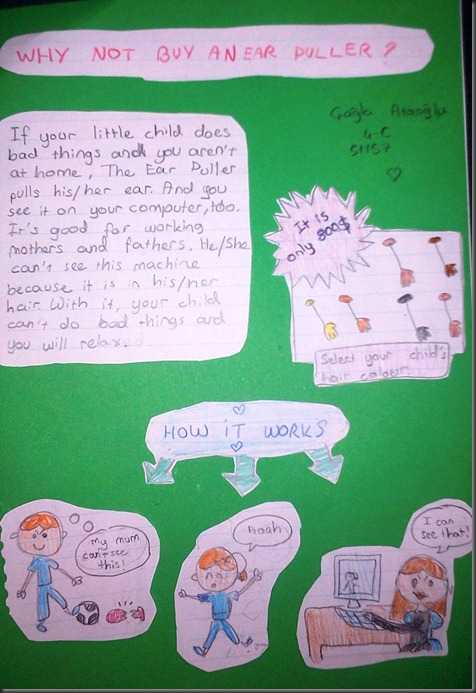 WHY NOT BUY AN EAR PULLER ?
Çağla Ataoğlu
4-C
51157
If your little child does
bad things and you aren't
at home, The Ear Puller
pulls his/her ear. And you
see it on your computer, too.
It's good for working
mothers and fathers. He/She
can't see this machine
because it is in his/her
hair. With it, your child
can't do bad things and
you will relaxed
It is
only 800$
Select your child's
hair colour
HOW IT WORKS
My mum
can't see
this!
Aaah
I can
see that!